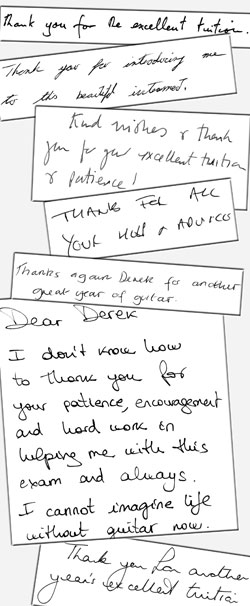 Thank you for the excellent tuition.
Thank you for introducing me
to this beautiful instrument.
Kind wishes & thank
you for your excellent tuition
& patience!
THANKS FOR ALL
YOUR HELP & ADVICE
Thanks again Derek for another
great year of guitar.
Dear Derek
I don't know how
to thank you for
your patience, encouragement
and hard work in
helping me with this
exam and always.
I cannot imagine life
without guitar now.
Thank you for another
year's excellent tuition